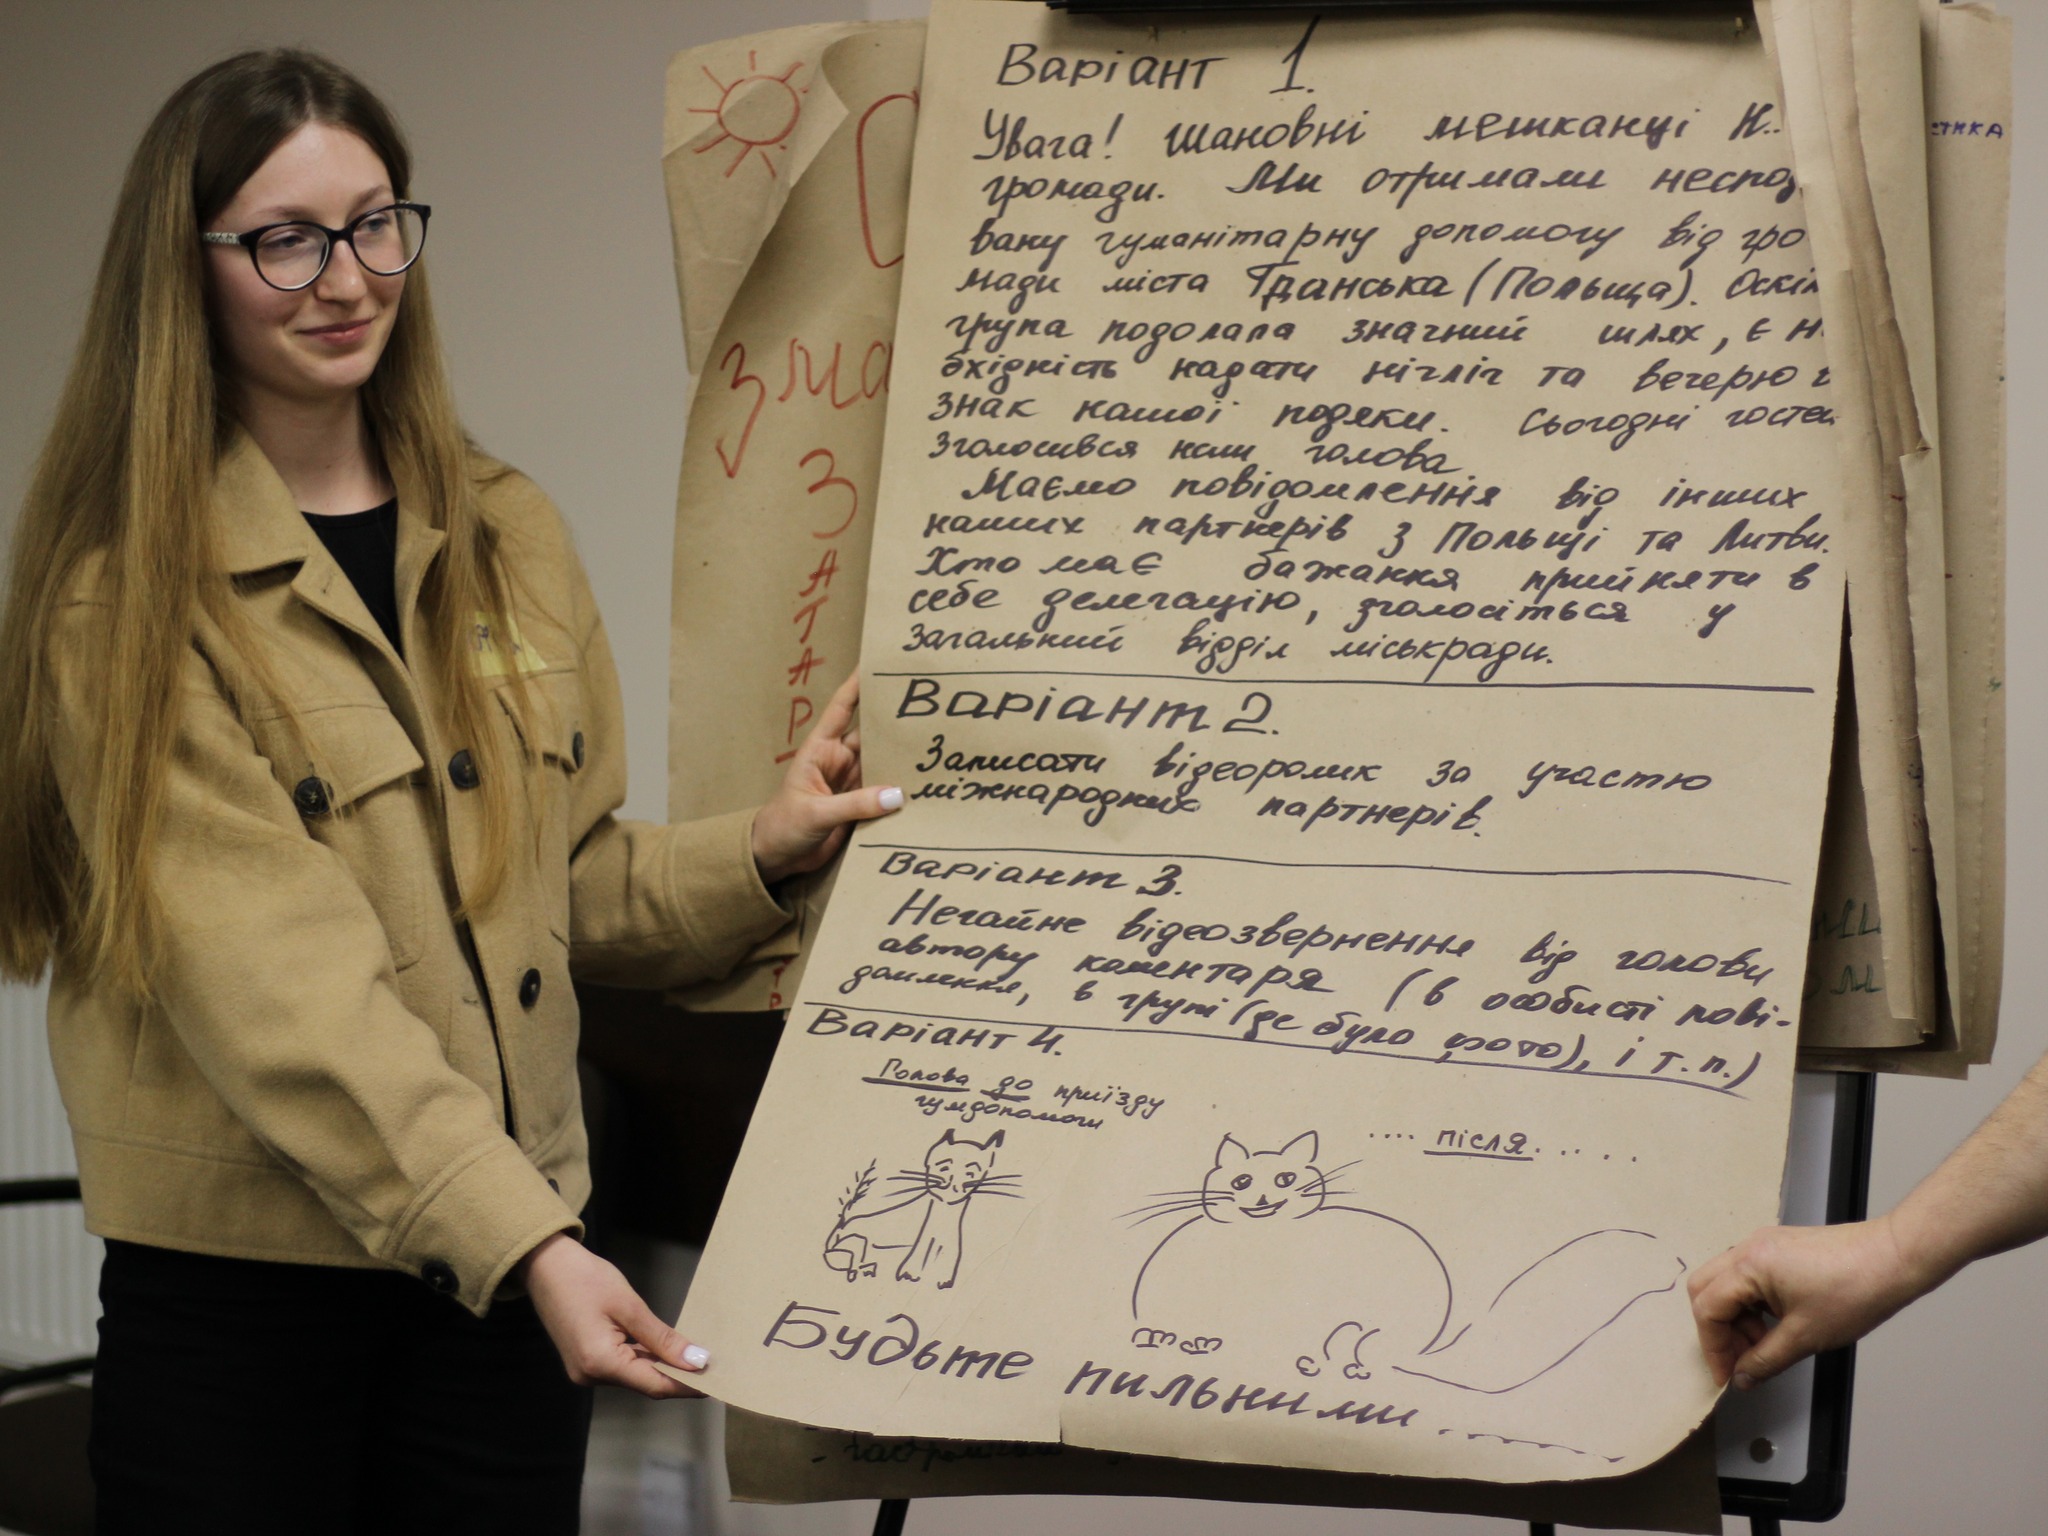 Варіант 1.
Увага! Шановні мешканці Н..
громади. Ми отримали неспод
вану гуманітарну допомогу від гро
мади міста Гданська (Польща). Оскіл
група подолала значний шлях, є н
бхідність надати нічліг та вечерю
знак нашої подяки. Сьогодні гостей
зголосився наш голова
Маємо повідомлення від інших
наших партнерів з Польщі та Литви.
Хто має бажання прийняти в
себе делегацію, зголосіться у
Загальний відділ міськради.
Варіант 2.
Записати відеоролик за участю
міжнародних партнерів.
Варіант 3.
Негайне відеозвернення від голови
автору коментаря (в особисті пові-
домлення, в групі (де було фото), і т.п.)
Варіант 4.
Голова до приїзду
гумдопомоги
.... після.....
Будьте пильними........
зма
З
А
Т
А
Р
стика